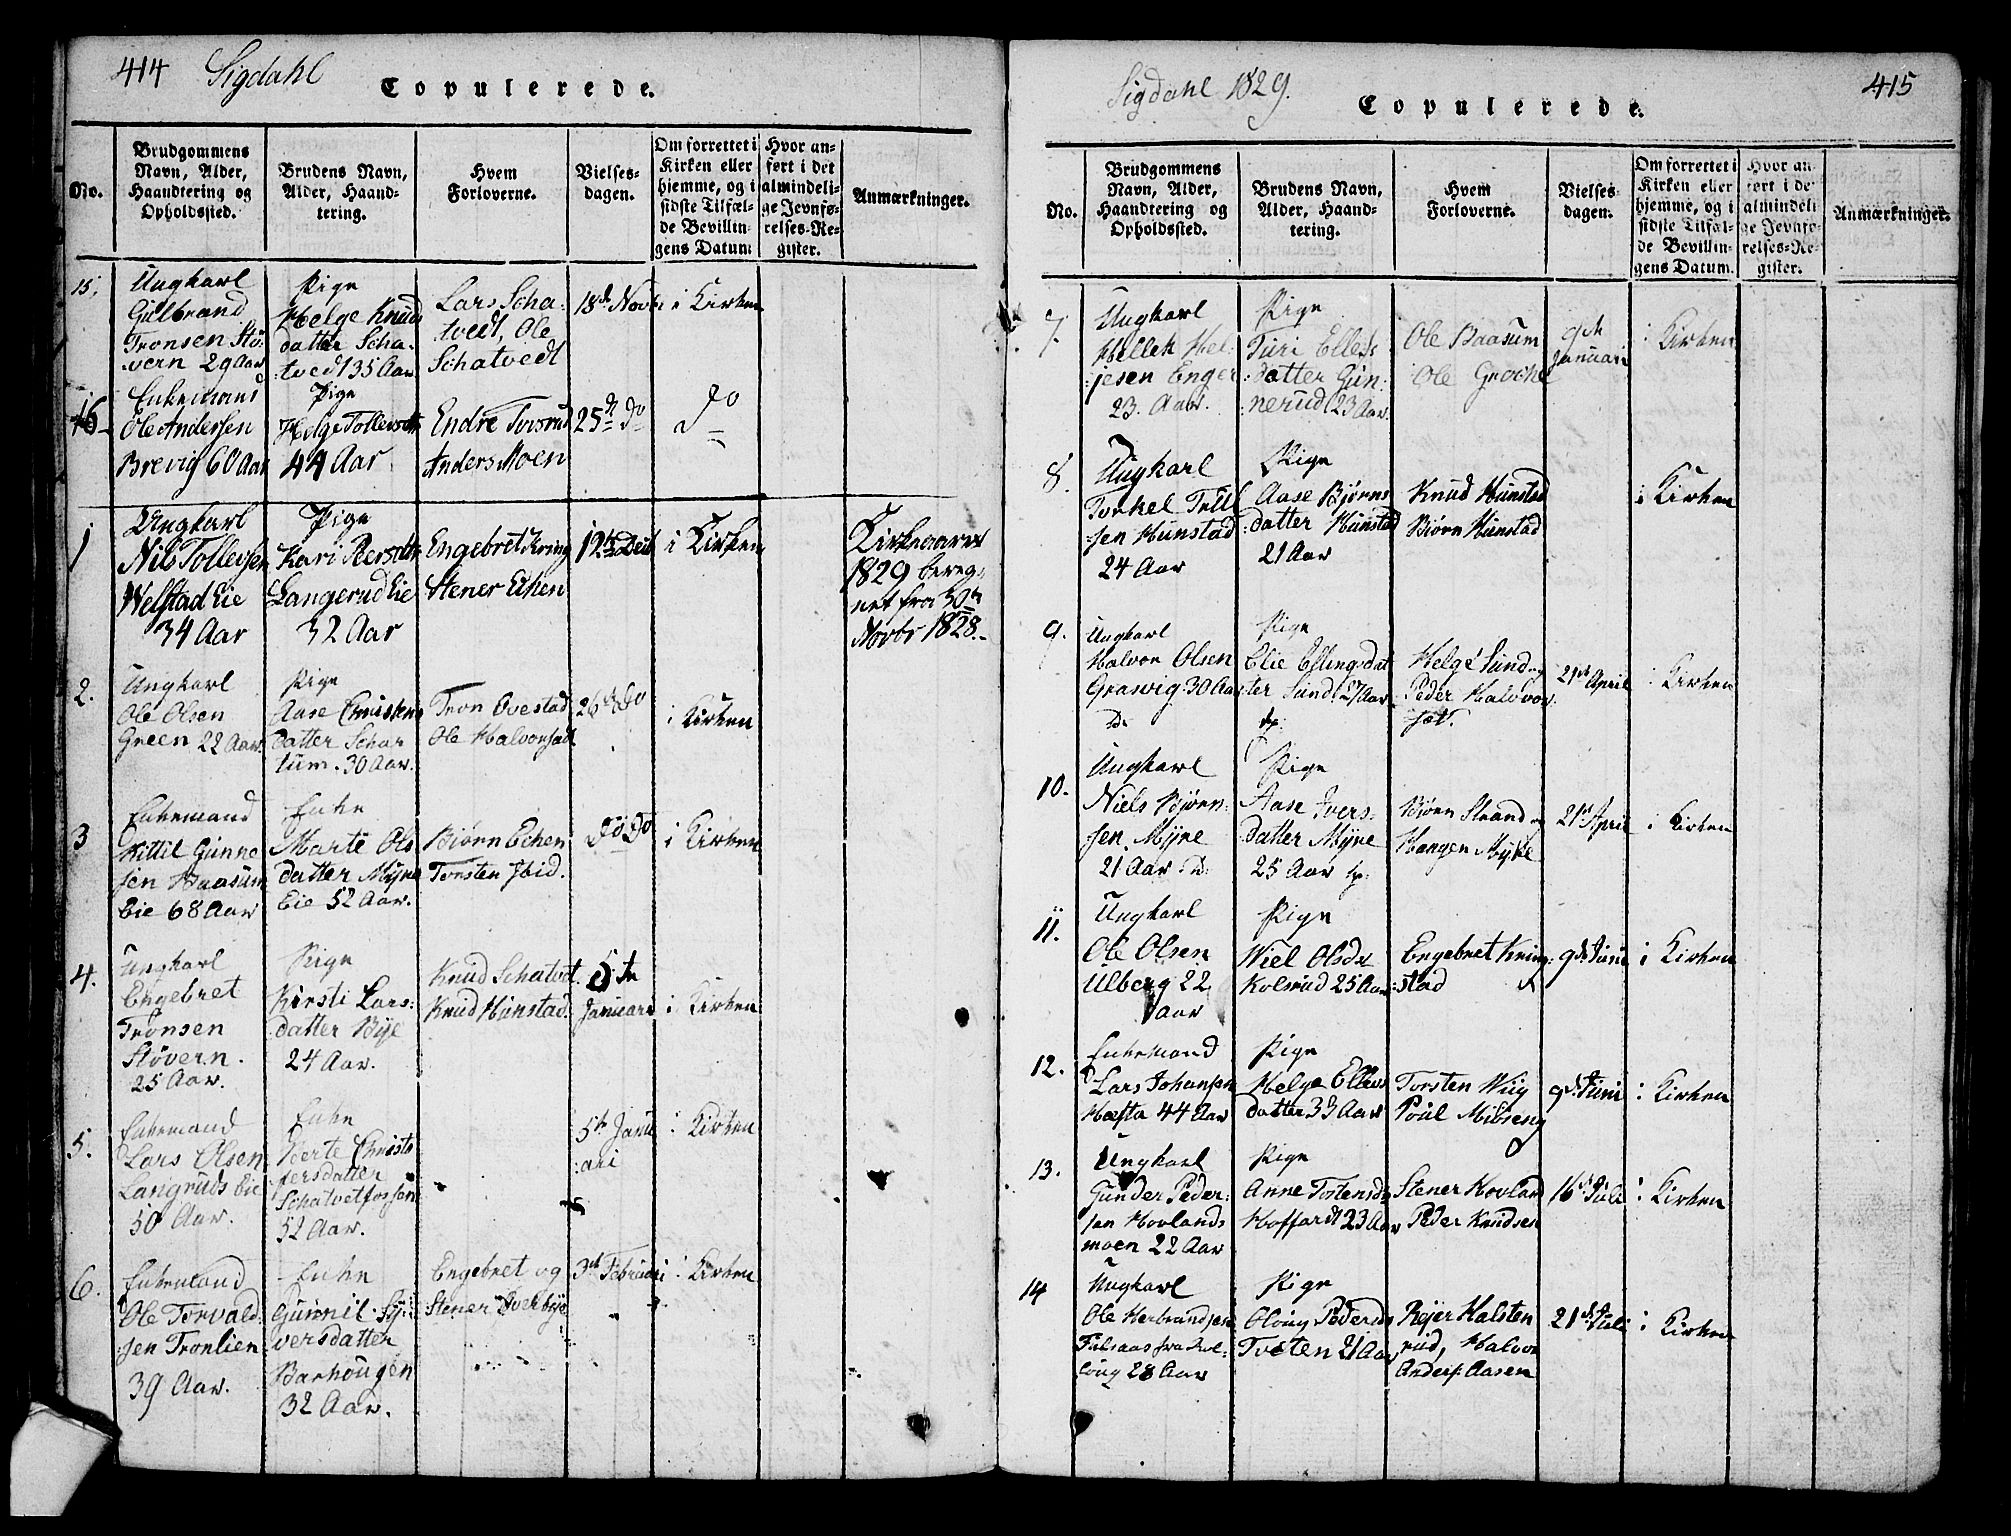 414 Sigdahl
Copulerede.
No.
Brudgommens Navn, Alder, Haandtering og Opholdssted.
Brudens Navn, Alder, Haand-tering.
Hvem Forloverne.
Vielses-dagen.
Om forrettet i Kirken eller hjemme, og i sidste Tilfæl-de Bevillin-gens Datum
Hvor an-ført i det almindeli-ge Jevnfø-relses-Re-gister.
Anmærkninger.
15.
Ungkarl
Gulbrand
Tronsen Stö-
vern 29 Aar
Pige
Helge Knuds
datter Scha-
tvedt 35 Aar
Lars Scha-
tvedt, Ole
Schatvedt
18de Novbr
i Kirken
16
Enkemand
Ole Andersen
Brevig 60 Aar
Pige
Helge Tollevsdtr
44 Aar
Endre Tovsrud
Anders Moen
25de do
do
1
Ungkarl
Nils Tollevsen
Welstad Eie
34 Aar
Pige
Kari Peersdtr
Langerud Eie
32 Aar
Engebret Kring
Stener Eken
i Kirken
Kirkeaaret
1829 bereg-
net fra 30te
Novbr 1828.
2.
Ungkarl
Ole Olsen
Green 22 Aar.
Pige
Aase Christens
datter Schar
tum. 30 Aar.
Tron Ovestad
Ole Halvorsad
26de do
i Kirken
3
Enkemand
Kittil Gunne
sen Haasum
Eie 68 Aar
Enke
Marte Ols
datter Myne
Eie 52 Aar.
Biørn Echen
Torsten Ibid.
do do
i Kirken
4.
Ungkarl
Engebret
Tronsen
Stövern.
25 Aar.
Pige
Kirsti Lars:
datter Bye
24 Aar.
Knud Schatvet.
Knud Hunstad.
5te
Januari
i Kirken
5.
Enkemand
Lars Olsen
Langruds Eie
50 Aar.
Enke
Berte Christo
fersdatter
Schatvetfossen
52 Aar.
5te Janu
:ari
i Kirken
6.
Enkemand
Ole Torvald
:sen Tronlien
39 Aar.
Enke
Gunnil Sy-
versdatter
Barhougen
32 Aar.
Engebret og
Stener Overbye
3de Februari
i Kirken
Sigdahl 1829.
415
Copulerede.
No.
Brudgommens Navn, Alder, Haandtering og Opholdssted.
Brudens Navn, Alder, Haand-tering.
Hvem Forloverne.
Vielses-dagen.
Om forrettet i Kirken eller hjemme, og i sidste Tilfæl-de Bevillin-gens Datum.
Hvor an-ført i de almindeli-ge Jevnfø-relses-Re-gister.
Anmærkninger.
7.
Ungkarl
Hellek Hel:
:jesen Enger
23. Aar.
Pige
Turi Ellefs
:datter Gun:
:nerud 23 Aar.
Ole Baasum
Ole Groche
9de
Januari
i Kirken
8.
Ungkarl
Torkel Trul
:sen Hunstad
24 Aar
Pige
Aase Bjørns
:datter Hunstad
21 Aar
Knud Hunstad
Biørn Hunstad
i Kirken
9.
Ungkarl
Halvor Olsen
Grawig. 30 Aar
Pige
Elie Ellingsdat
ter Lund. 27 Aar.
Helge Lund og
Peder Halvor
set.
21de April
i Kirken
10.
Ungkarl
Niels Bjørn:
sen. Myre
21 Aar
Pige
Aase Ivers-
datter Myre
25 Aar
Biørn Strand og
21de April
i Kirken
11.
Ungkarl
Ole Olsen
Ulberg 22
Aar
Pige
Wiel Olsdr
Kolsrud 25 Aar
Engebret Kring:
:stad
9de Juni
i Kirken
12.
Enkemand
Lars Johansen
Hæsta 44 Aar
Pige
Helge Ellevs
datter 33 Aar
Torsten Wiig
Poul Mosseng
9de Juni
i Kirken
13.
Ungkarl
Gunder Peder:
sen Hovlands
moen 22 Aar
Pige
Anne Tostensdr
Hoffardt 23 Aar
Stener Hovland
Peder Knudsen
16de Juli
i Kirken
14
Ungkarl
Ole Herbrandsen
28 Aar
Pige
Pedersdr
Tveten 21 Aar
Rejer Halsten
rud, Halvor
Anders: Aasen
21de Juli
i Kirken